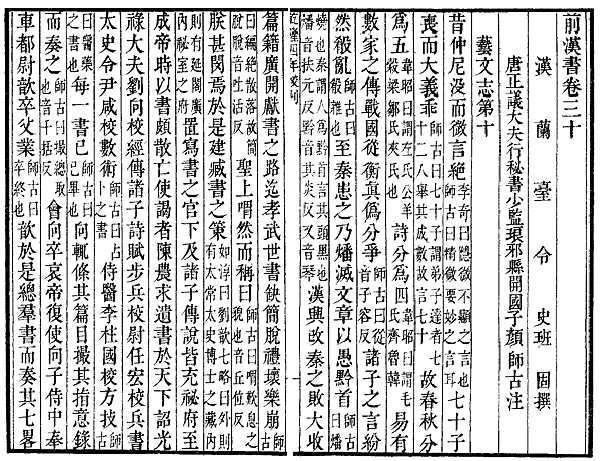 前漢書卷三十
漢蘭臺令史班固撰
唐正議大夫行秘書少監琅邪縣開國子顏師古注
藝文志第十
昔仲尼沒而微言絕李奇曰隱微不顯之言也師古曰精微要妙之言耳七十子
喪而大義乖師古曰七十子謂弟子達者七十二人舉其成數故言七十故春秋分
爲五韋昭曰謂左氏公羊穀梁鄒氏夾氏也詩分爲四韋昭曰謂毛氏齊魯韓易有
數家之傳戰國從衡真僞分爭師古曰從音子容反諸子之言紛
然殽亂師古曰殽雜也至秦患之乃燔滅文章以愚黔首師古曰燔
燒也秦謂人爲黔首言其頭黑也燔音扶元反黔音其炎反又音琴漢興改秦之敗大收
乾隆四年校刊
篇籍廣開獻書之路迄孝武世書缺簡脫禮壞樂崩師古
曰編絶散落故簡脫脫音吐活反聖上喟然而稱曰師古曰喟歎息之貌也音丘位反
朕甚閔焉於是建臧書之策如淳曰劉歆七略曰外則有太常太史博士之藏內
則有延閣廣內祕室之府置寫書之官下及諸子傳說皆充祕府至
成帝時以書頗散亡使謁者陳農求遺書於天下詔光
祿大夫劉向校經傳諸子詩賦步兵校尉任宏校兵書
太史令尹咸校數術師古曰占卜之書侍醫李柱國校方技師古
曰醫藥之書也每一書已師古曰已畢也向輒條其篇目撮其指意錄
而奏之師古曰撮總取也音千括反會向卒哀帝復使向子侍中奉
車都尉歆卒父業師古曰卒終也歆於是總羣書而奏其七畧